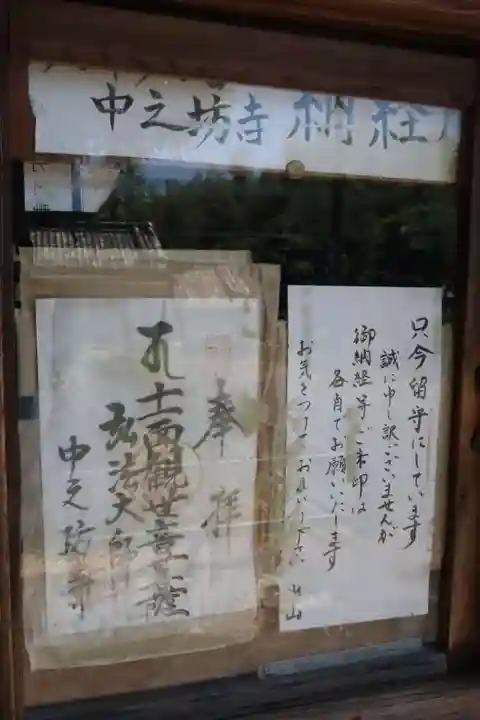 中之坊寺 納経
只今留守にしています
誠に申し訳ございませんが
御納経等ご朱印は
各自でお願いいたします
お気をつけてお参り下さい
奉拝
十一面観世音菩薩
弘法大師
中之坊寺